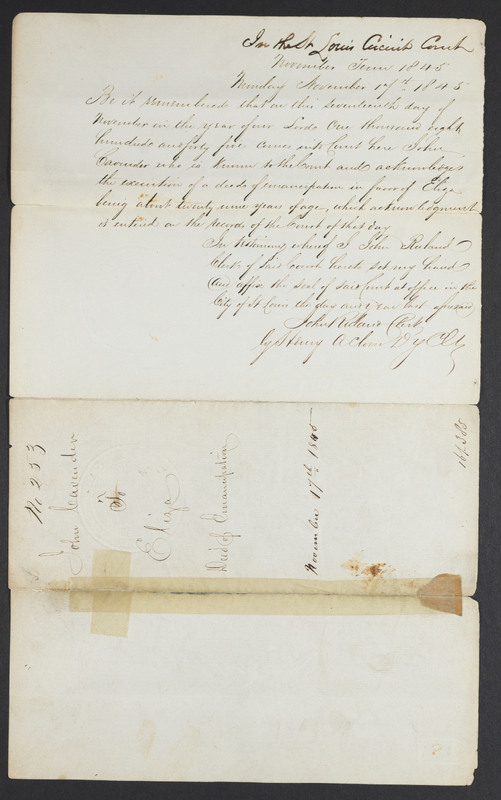 In the St Louis Circuit Court
November Term 1845
Monday November 17th 1845
Be it remembered that on this Seventeenth day of
November in the year of our Lord One thousand eight
hundred and forty five comes into Court here John
Cavender who is known to the Court and acknowledges
the execution of a deed of emancipation in favor of Eliza
being about twenty nine years of age, which acknowledgment
is entered on the record of the Court of that day
In testimony whereof I John Ruland
Clerk of said Court hereto set my hand
and affix the seal of said Court at office in the
City of St Louis the day and year last aforesaid
John Ruland Clerk
by Henry A Clover Dy Clk
No 253
John Cavender
To
Eliza
Deed of Emancipation
November 17th 1845